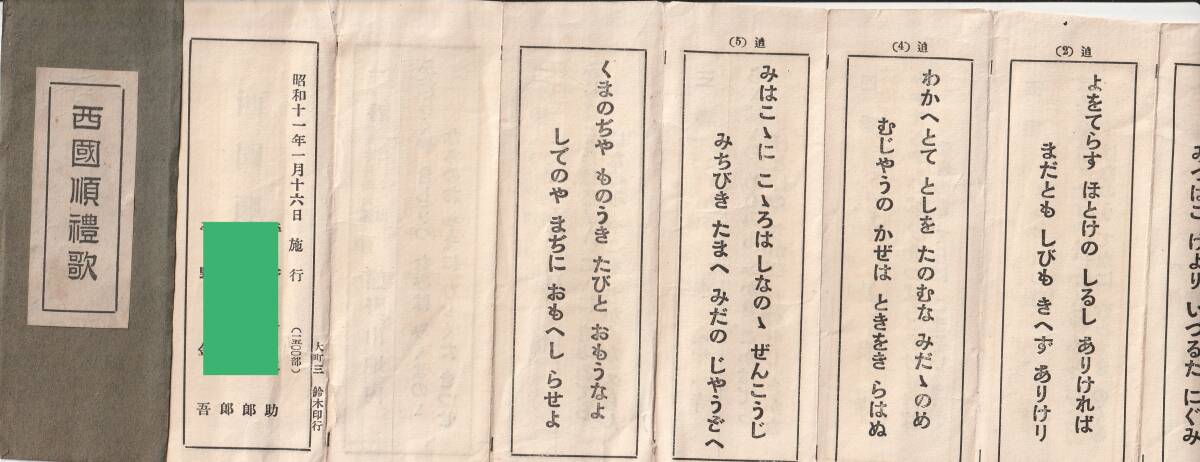 西國順禮歌
昭和十一年一月十六日 施行
吾郎郎助
(一五〇〇部)
大町三 鈴木印行
くまのぢや ものうき たびと おもうなよ
してのや まぢに おもへし らせよ
追(5)
みはこゝに こゝろは しなのゝ ぜんこうじ
みちびき たまへ みだの じやうどへ
追(4)
わかへとて としを たのむな みだゝのめ
むじやうの かぜは ときをき らはぬ
追(2)
よをてらす ほとけの しるし ありければ
まだとも しびも きへず ありけり
みつはこ けより いつるた にぐみ